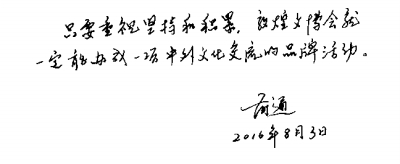 只要重视坚持和积累，敦煌文博会就
一定能办成一项中外文化交流的品牌活动。
2016年8月3日